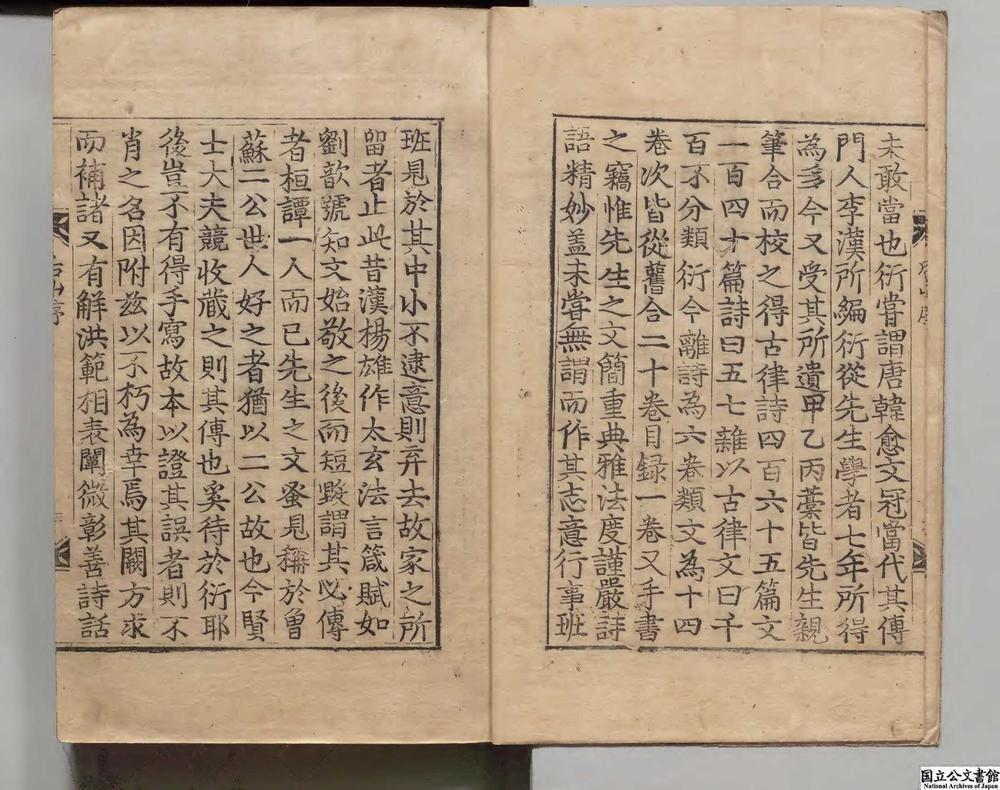 未敢當也衍嘗謂唐韓愈文冠當代其傳
門人李漢所編衍從先生學者七年所得
為多今又受其所遺甲乙丙藁皆先生親
筆合而校之得古律詩四百六十五篇文
一百四十篇詩曰五七雜以古律文曰千
百不分類衍今離詩為六卷類文為十四
卷次皆從舊合二十卷目録一卷又手書
之竊惟先生之文簡重典雅法度謹嚴詩
語精妙盖未嘗無謂而作其志意行事班
班見於其中小不逮意則弃去故家之所
留者止此昔漢楊雄作太玄法言箴賦如
劉歆號知文始敬之後而短毀謂其必傳
者桓譚一人而已先生之文蚤見稱於曾
蘇二公世人好之者猶以二公故也今賢
士大夫競收藏之則其傳也奚待於衍耶
後豈不有得手寫故本以證其誤者則不
肖之名因附兹以不朽為幸焉其闕方求
而補諸又有解洪範相表闡微彰善詩話
后山序
国立公文書館
National Archives of Japan